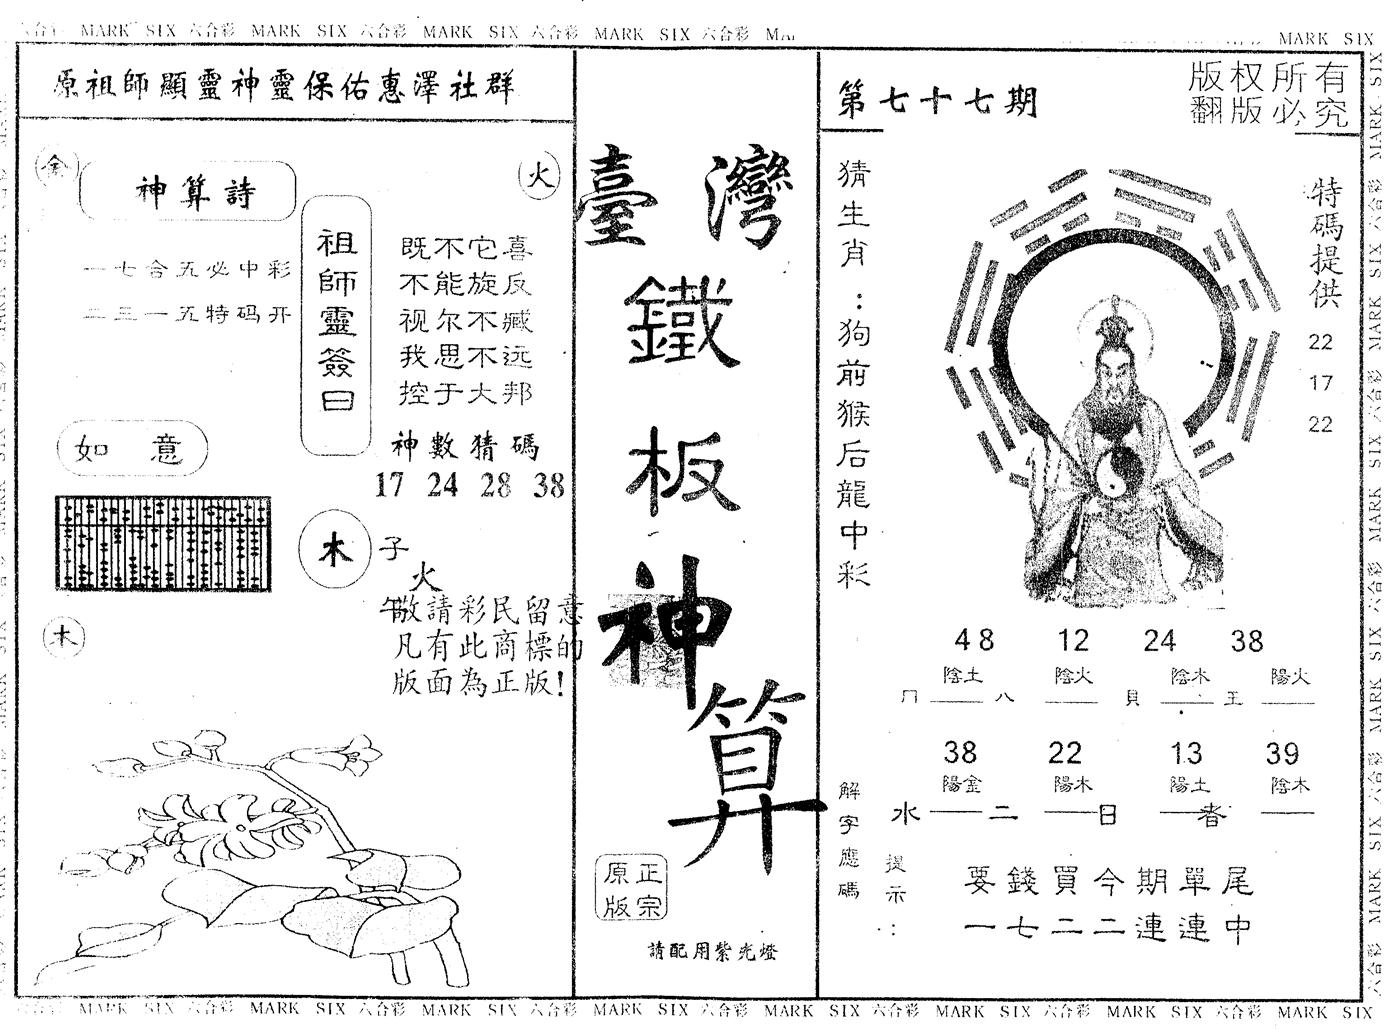 MARK SIX 六合彩 MARK SIX 六合彩 MARK SIX 六合彩 MARK SIX 六合彩
MARK SIX
原祖師顯靈神靈保佑惠澤社群
金
火
神算詩
一七合五必中彩
二三一五特码开
祖師靈簽曰
既不它喜
不能旋反
视尔不臧
我思不远
控于大邦
神數猜碼
17 24 28 38
如意
木
子
火
午
木
敬請彩民留意
凡有此商標的
版面為正版!
臺灣
鐵
板
神
算
正宗
原版
請配用紫光燈
第七十七期
版权所有
翻版必究
猜生肖：狗前猴后龍中彩
特碼提供
22
17
22
48 12 24 38
陰土 陰火 陰木 陽火
八 貝 王
38 22 13 39
陽金 陽木 陽土 陰木
水 二 日 者
解字應碼
提示：
要錢買今期單尾
一七二二連連中
MARK SIX 六合彩 MARK SIX 六合彩 MARK SIX 六合彩 MARK SIX 六合彩 MARK SIX 六合彩 MARK SIX 六合彩 MARK SIX